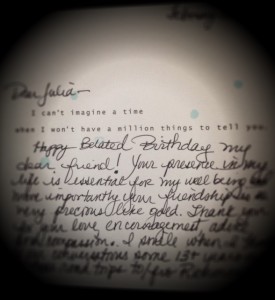 Dear Julia -
I can't imagine a time
when I won't have a million things to tell you.
Happy Belated Birthday my
dear friend! Your presence in my
life is essential for my well being
more importantly your friendship is
very precious like gold. Thank you
for your love, encouragement, advice
compassion. I smile when I
conversations some 15+ years
road trips to